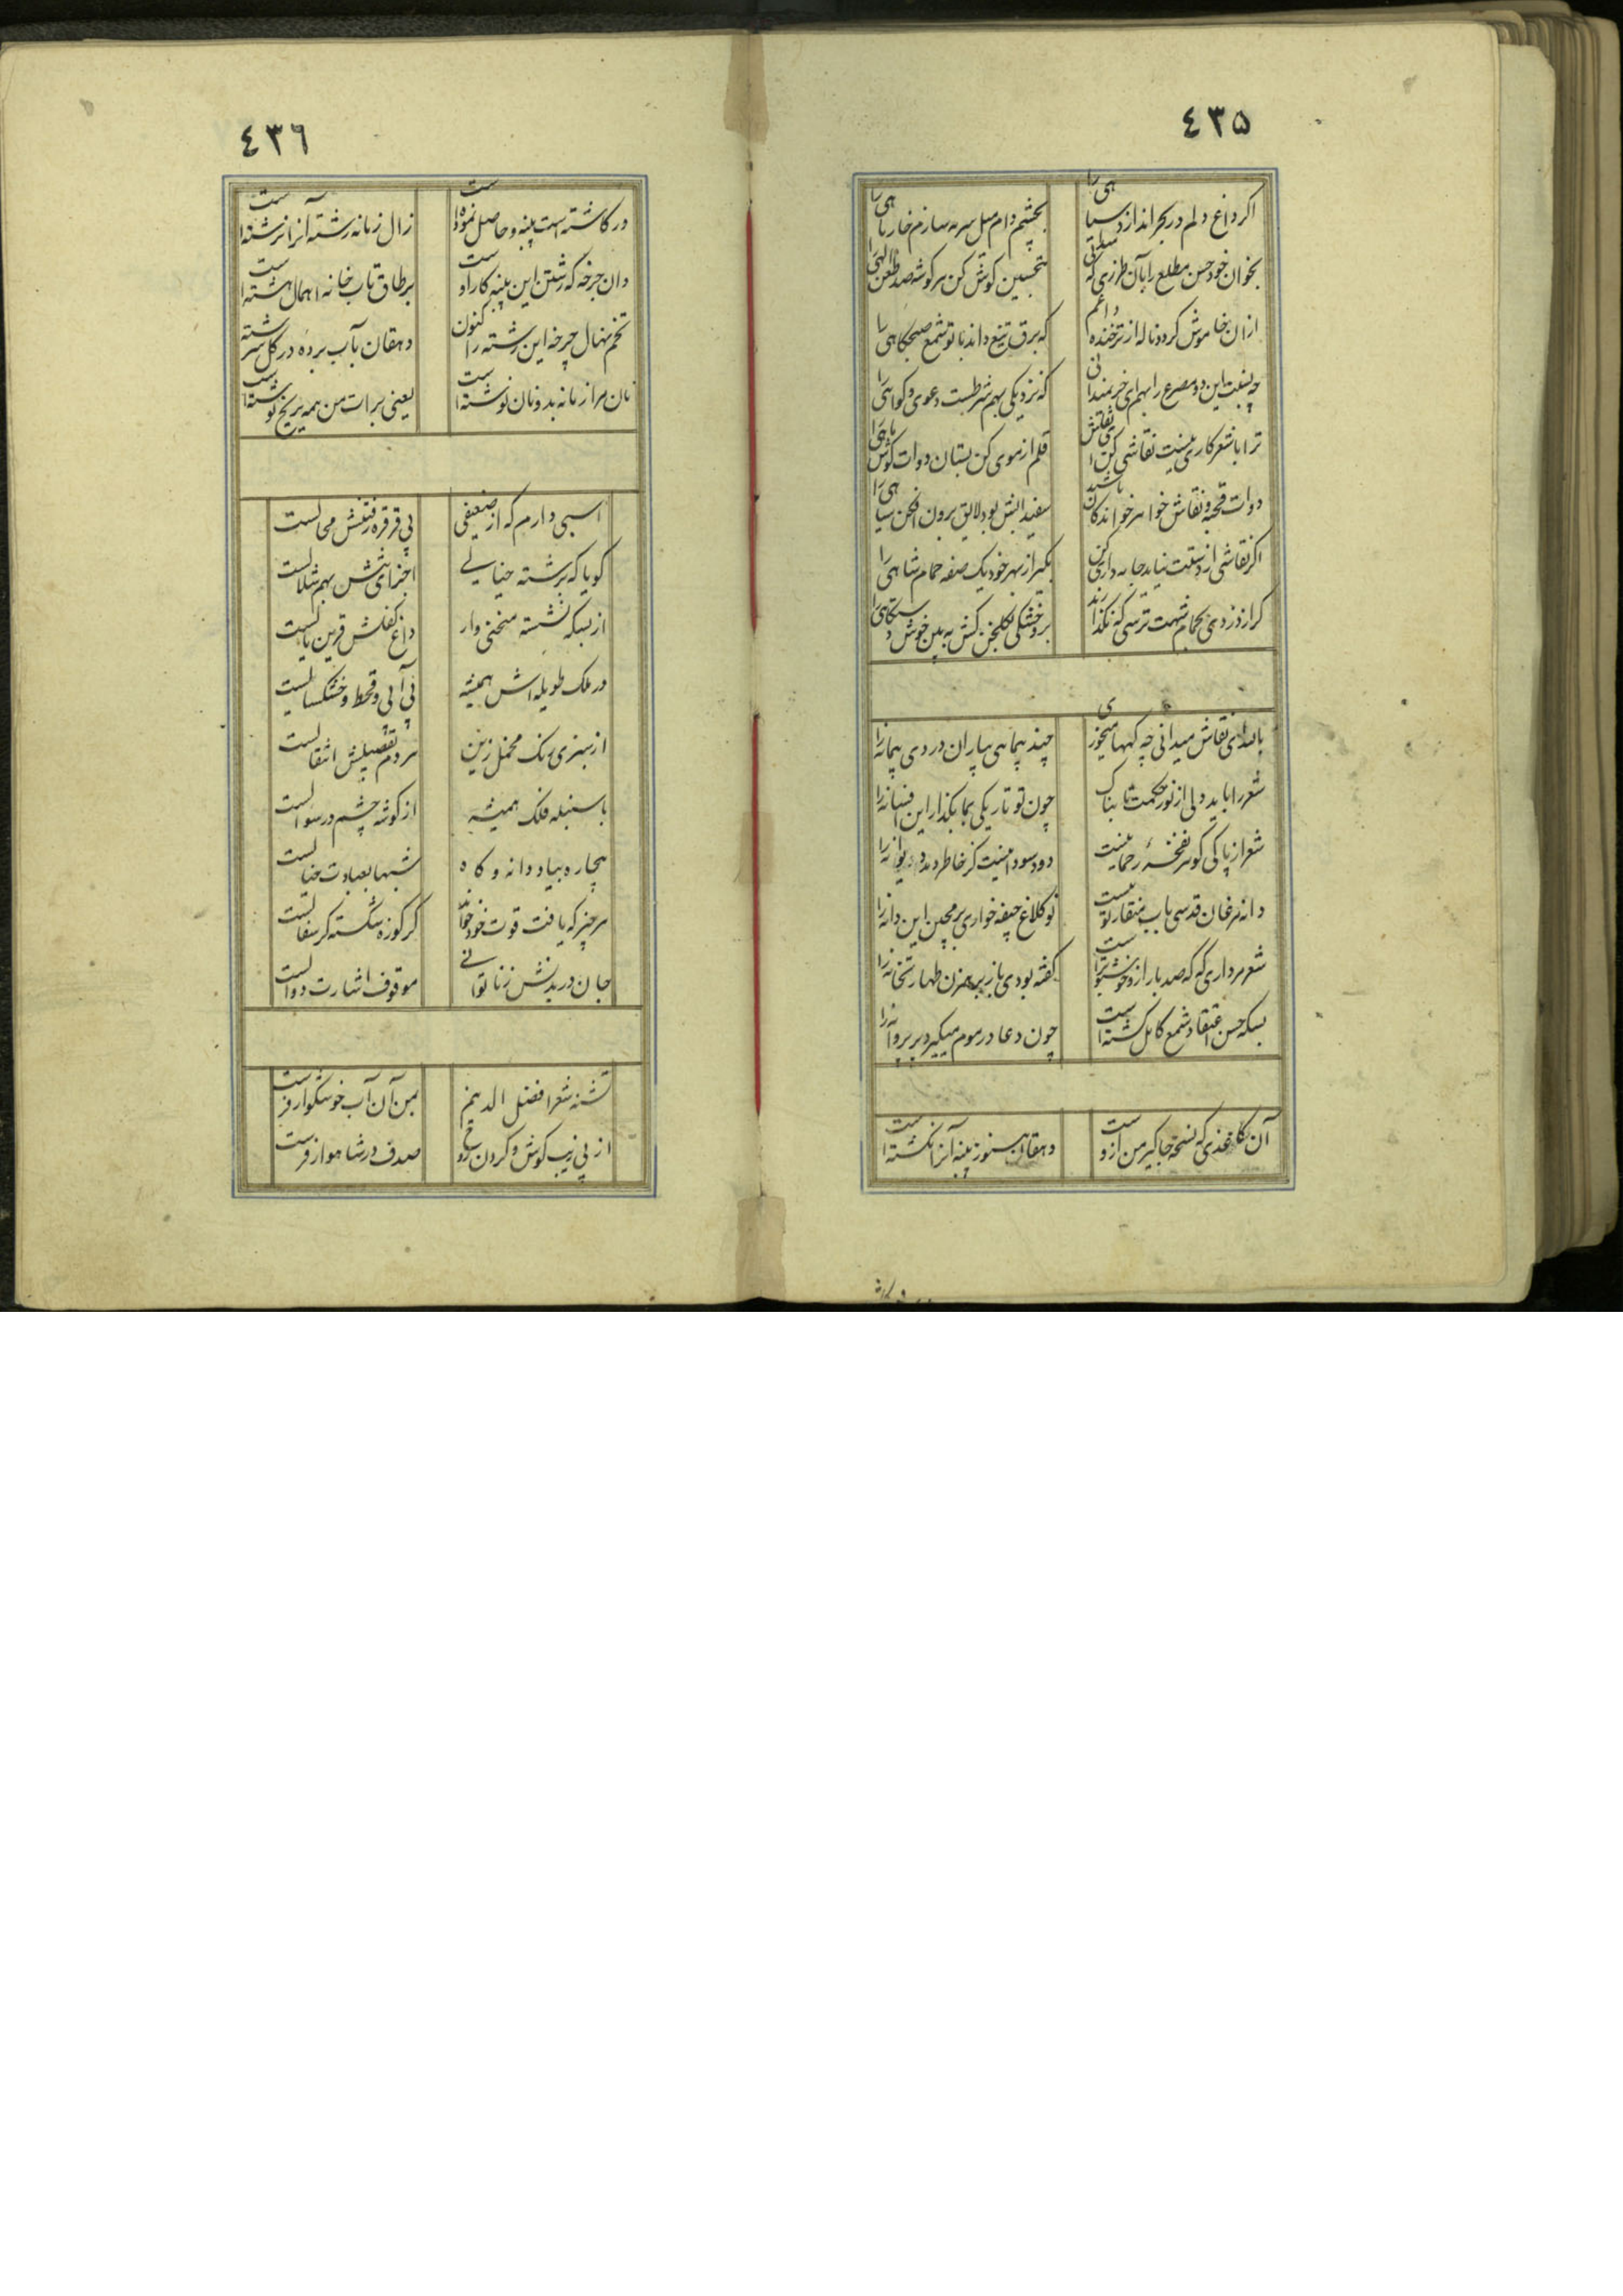 ٤٣٥
اگر داغ دلم در بحر اندازد سیاهی را
بچشم دام میل سرمه سازم خار ماهی را
بخوان خود حسن مطلع را بآن طرزی که میدانی
بتحسین کوش کن هر گوشه صد
ازان خاموش کرد و ناله از تر خنده دائم
که برق تیغ داند با تو شمع صبحگاهی را
چه نسبت این دو مصرع را بهم ای خریمندانی
که نزدیکی بهم شرطست دعوی و گواهی را
ترا با شعر کاری نیست نقاشی کن ای نقاش
قلم از موی کن بستان دوات
دوات قحبه و نقاش خواهر خوانده کان باشد
سفید ابش بود لایق برون افکن سیاهی را
اگر نقاشی از دستت نیاید جامه داری کن
بگیر از بهر خود یک صفه حمام شاهی را
گر از دزدی بحمام شهت ترسی که نگذارند
برو خشکی گلخن کش به بین خوش دستگاهی را
بالله ای نقاش میدانی چه گهها میخوری
چند پیمائی بیاران دردی پیمانه را
شعر را باید دلی از نور حکمت تابناک
چون تو تاریکی بما بگذار این افسانه را
شعر از پاکی گوهر نفخهٔ رحمانیست
دود سودا نیست کز خاطر دمد دیوانه را
دانه مرغان قدسی باب منقار تو نیست
تو کلاغ جیفه خواری بر مچین این دانه را
شعر مرداری که که صد بار ازو خوشبوتر است
گفته بودی باز بر هم زن طهارتخانه را
بسکه حسن اعتقاد شمع کامل گشته است
چون دعا در موم میگیرد پر پروانه را
آن کاغذی که نسخه جاگیر من ازوست
دهقان هنوز پنبه آنرا نکشته است
٤٣٦
در کاشته است پنبه و حاصل نموده است
زال زمانه رشته آنرا نرشته است
دان چرخه که رشتن این پنبه کار اوست
بر طاق تاب خانه اهمال هشته است
تخم نهال چرخه این رشته را کنون
دهقان بآب برده در گل سرشته
نان مرا زمانه بدونان نوشته است
یعنی برات من همه بر یخ نوشته است
اسبی دارم که از ضعیفی
بی قرقره رفتنش محالست
گویا که برشته خیالی
اجزای تنش بهم شلالست
از بسکه نشسته منحنی وار
داغ کفلش قرین یالست
در ملک طویله اش همیشه
بی آبی و قحط و خشکسالیست
از سبزی رنگ مخمل زین
هر دم بفصیلش انتقالست
با سنبله فلک همیشه
از گوشه چشم در سؤالست
بیچاره بیاد دانه و کاه
شبها بعبادت خیالست
هر چیز که یافت قوت خود خواند
گر کوزه شکسته گر سفالست
جان در بدنش ز ناتوانی
موقوف اشارت دوالست
تشنه شعر افضل الدینم
بمن آن آب خوشگوار فرست
از پی زیب گوش و گردن روح
صدف در شاهوار فرست